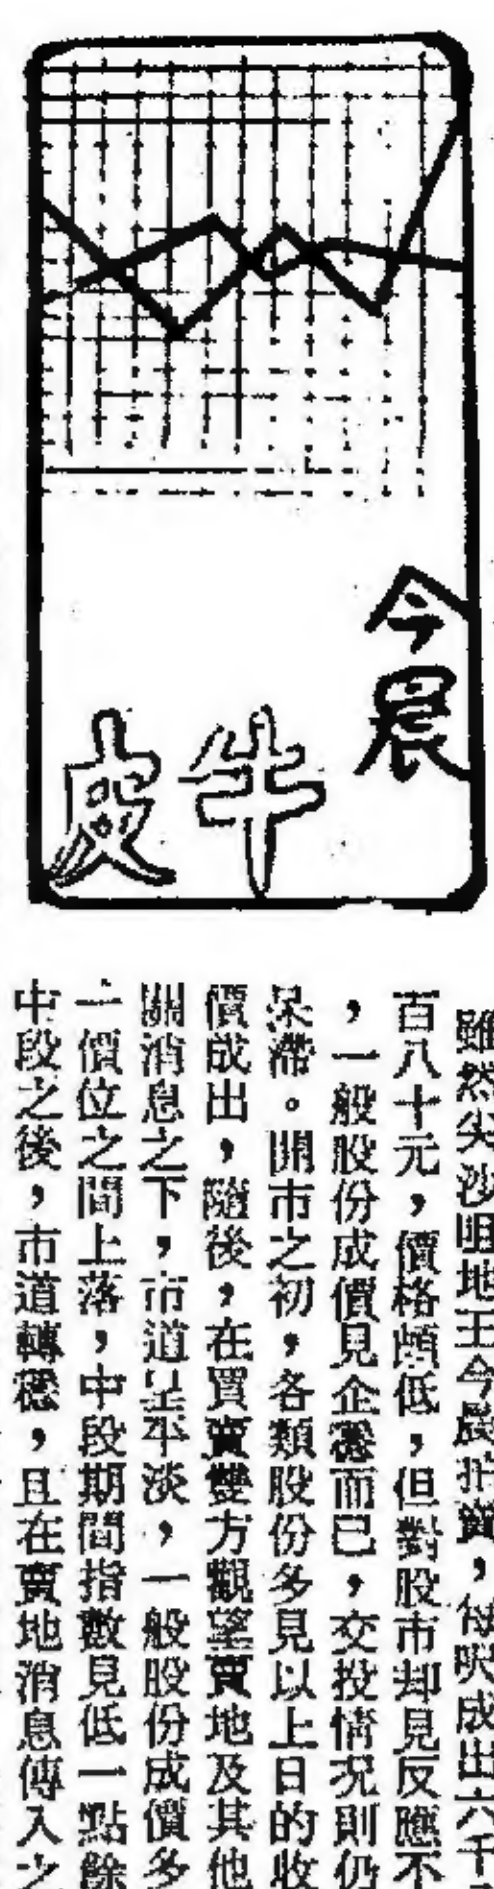 今晨
牛皮
雖然尖沙咀地王今晨拍賣,每呎成出六千
百八十元,價格頗低,但對股市却見反應不
,一般股份成價見企穩而已,交投情況則仍
呆滯。開市之初,各類股份多見以上日的收
價成出,隨後,在買賣雙方觀望賣地及其他
關消息之下,市道呈平淡,一般股份成價多
一價位之間上落,中段期間指數見低一點餘
中段之後,市道轉穩,且在賣地消息傳入之